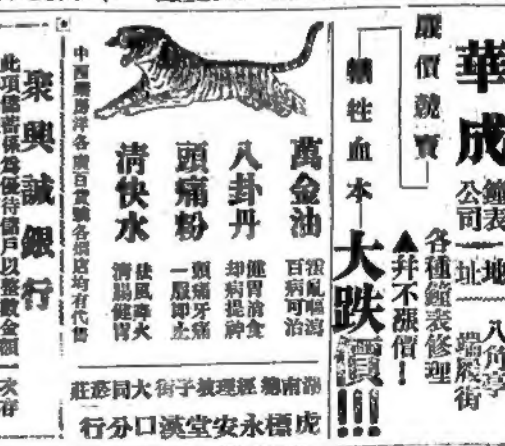 華成
鐘表公司
地址
八角亭
瑞履街
各種鐘表修理
▲幷不漲價！
減價競賣
犧牲血本
大跌價!!!
萬金油
霍亂嘔瀉
百病可治
八卦丹
健胃消食
却病提神
頭痛粉
頭痛牙痛
一服即止
清快水
祛風降火
清腸健胃
中西藥房洋各廣百貨號各埠均有代售
湖南總經理坡子街大同慈莊
虎標永安堂漢口分行
聚興誠銀行
此項儲蓄係為優待儲戶以整數金額一次存